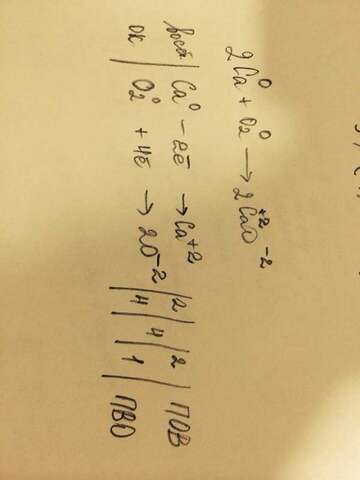 2Ca⁰ + O₂⁰ → 2Ca⁺²O⁻²
восст | Ca⁰ - 2ē → Ca⁺² | 2 | 4 | 2 | ПОВ
ок | O₂⁰ + 4ē → 2O⁻² | 4 | 1 | ПВО